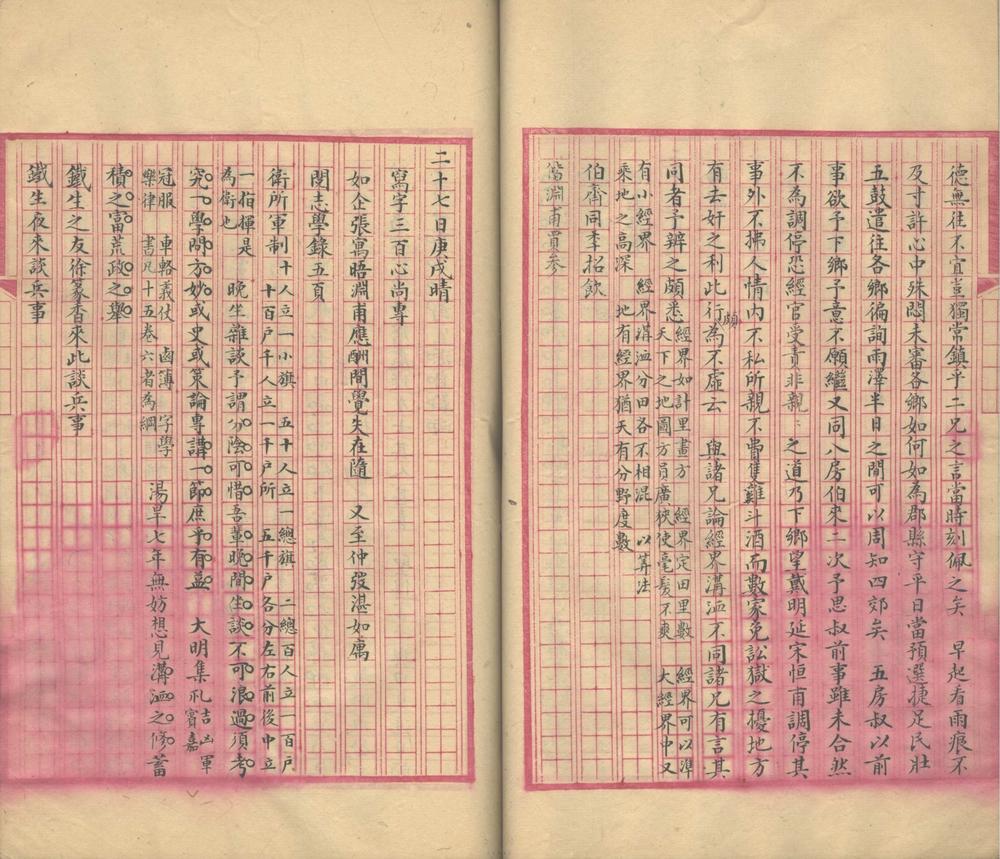 德無往不宜豈獨常鎮乎二兄之言當時刻佩之矣　早起看雨痕不
及寸許心中殊悶未審各鄉如何如為郡縣守平日當預選捷足民壯
五鼓遣往各鄉徧詢雨澤半日之間可以周知四郊矣　五房叔以前
事欲予下鄉予意不願繼又同八房伯來二次予思叔前事雖未合然
不為調停恐經官受責非親　之道乃下鄉望戴明延宋恒甫調停其
事外不拂人情內不私所親不費隻雞斗酒而數家免訟獄之擾地方
有去奸之利此行頗為不虛云　與諸兄論經界溝洫不同諸兄有言其
同者予辨之頗悉經界如計里畫方　經界定田里數　經界可以準
天下之地圖方員廣狹使毫髮不爽　大經界中又
有小經界　經界溝洫分田各不相混　以算法
乘地之高深　地有經界猶天有分野度數
伯齊同季招飲
階淵甫貫參
二十七日庚戌晴
寫字三百心尚專
如企張寓晤淵甫應酬間覺失在隨　又至仲弢湛如寓
閱志學錄五頁
衛所軍制十人立一小旗　五十人立一總旗　二總百人立一百戶
十百戶千人立一千戶所　五千戶各分左右前後中立
一指揮是
為衛也　晚生雜談予謂分陰可惜吾輩晚間坐談不可浪過須考
究一學問方妙或史或策論專講一節庶乎有益　大明集禮吉凶軍
賓嘉
冠服　車輅義仗　鹵簿　字學
樂律　書凡十五卷六者為綱　湯旱七年無妨想見溝洫之修蓄
積之富荒政之舉
鐵生之友徐篆香來此談兵事
鐵生夜來談兵事